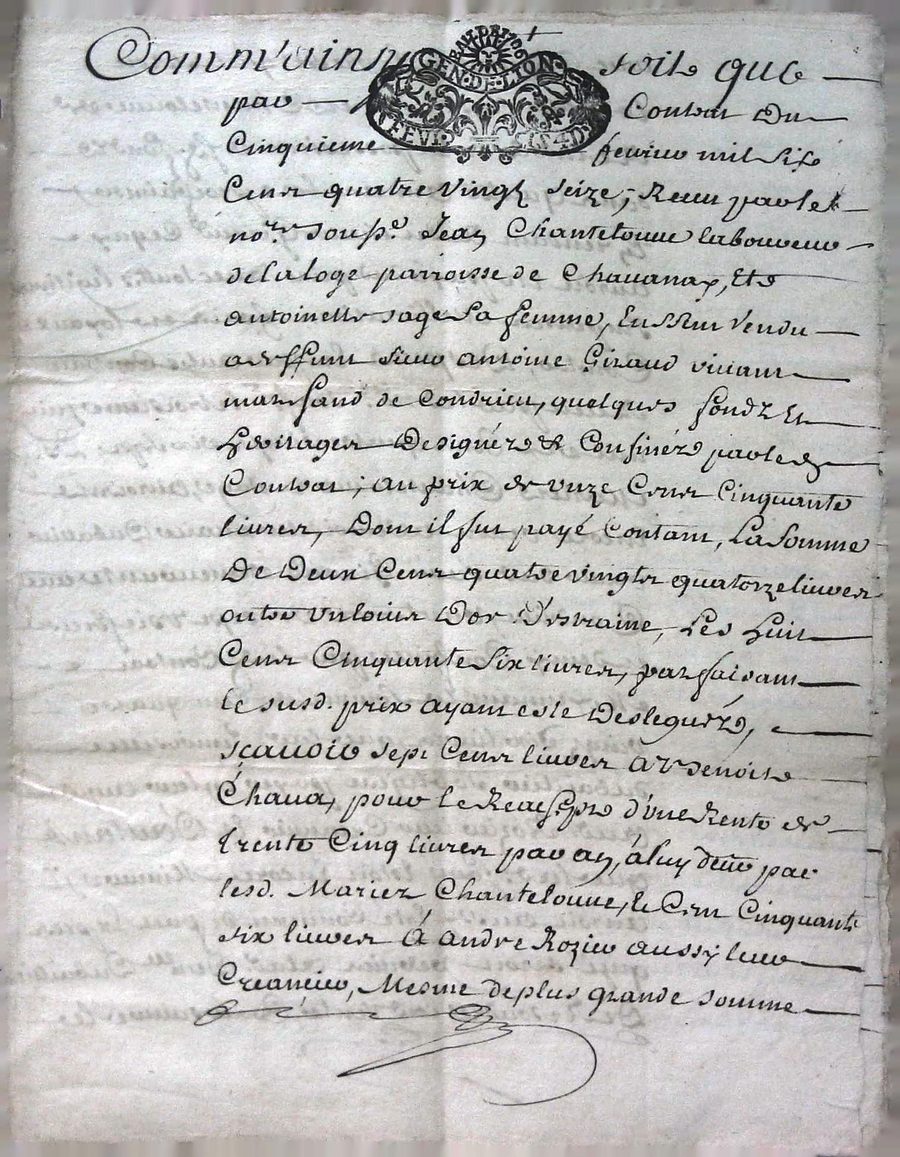 Comm'ainsy soit que
BAIL DE 1706
GEN·DE·LYON
par Contrat Du
Cinquieme feurier mil Six
Cens quatre vingt seize, Receu par le
no.re souss.é Jean Chantelouue laboureur
de la loge parroisse de Chauanay, Et
antoinette sage sa femme, Eussent Vendu
a deffunt sieur antoine Giraud viuant
marchand de Condrieu, quelques fondz Et
heritages Designéz & Confinéz par led.
Contrat; au prix de unze Cens Cinquante
liures, Dont il fut payé Contant, La Somme
De Deux Cens quatre vingts quatorze liures
outre un louis D'or D'estraine, Les huit
Cens Cinquante Six liures, parfaisant
le susd. prix ayant esté Desleguéz,
sçauoir sept Cens liures a Sr. Benoist
Chaua, pour le Reachept d'une Rente de
trente Cinq liures par an, a luy deue par
lesd. Mariez Chanteloue, le Cent Cinquante
six liures à andre Rozier aussy leur
Creancier, Mesme de plus grande somme